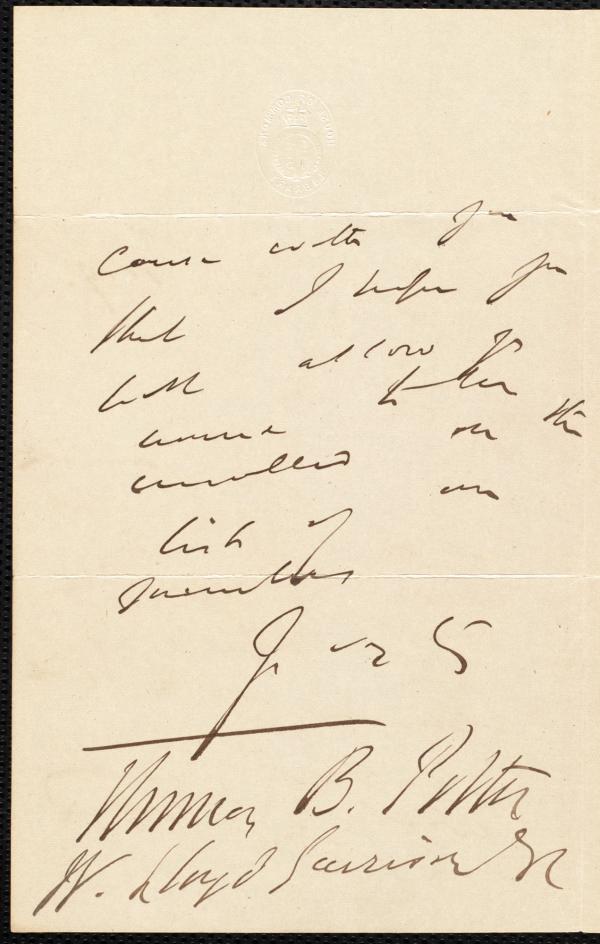 course with you
that I hope you
will allow yr
name to be
enrolled on the
list of our
members
Yrs
Thomas B. Potter
W. Lloyd Garrison Esq